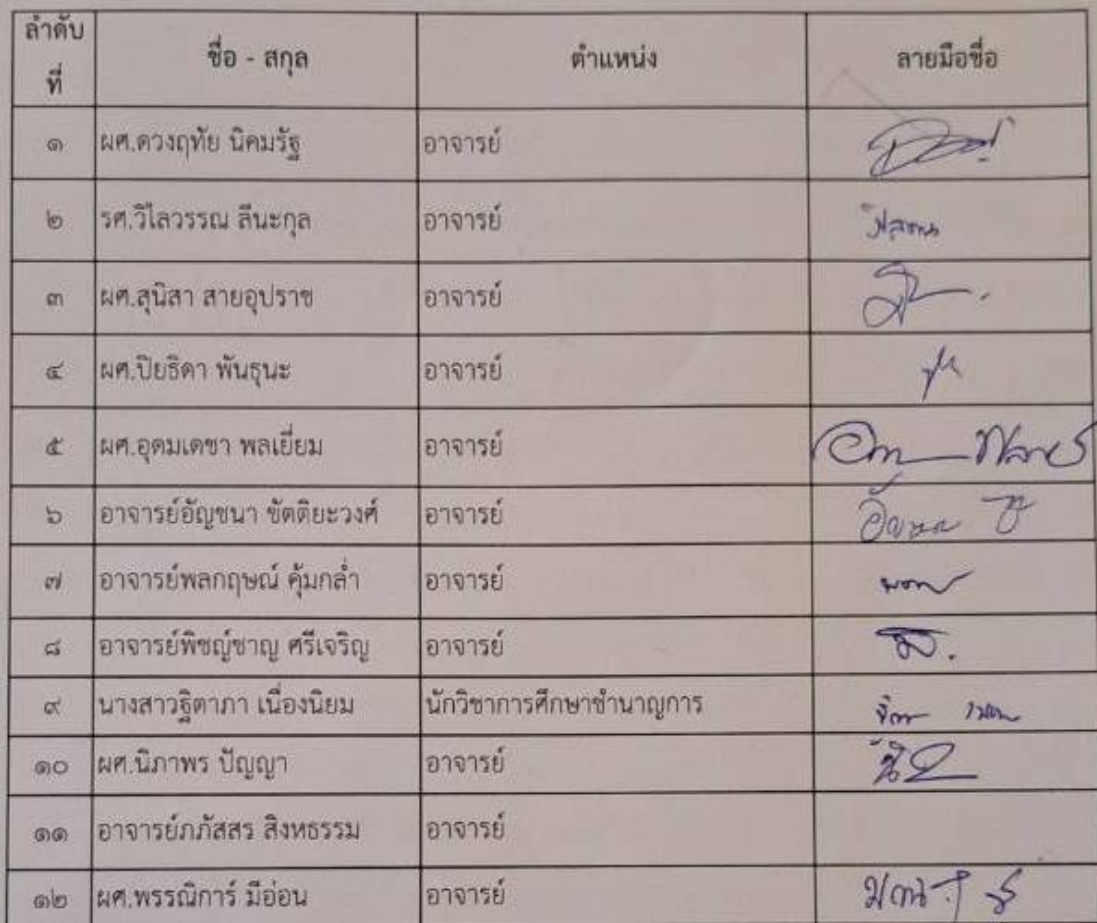 ลำดับที่ ชื่อ - สกุล ตำแหน่ง ลายมือชื่อ
๑ ผศ.ดวงฤทัย นิคมรัฐ อาจารย์
๒ รศ.วิไลวรรณ ลีนะกุล อาจารย์
๓ ผศ.สุนิสา สายอุปราช อาจารย์
๔ ผศ.ปิยธิดา พันธุนะ อาจารย์
๕ ผศ.อุดมเดชา พลเยี่ยม อาจารย์
๖ อาจารย์อัญชนา ขัตติยะวงศ์ อาจารย์
๗ อาจารย์พลกฤษณ์ คุ้มกล่ำ อาจารย์
๘ อาจารย์พิชญ์ชาญ ศรีเจริญ อาจารย์
๙ นางสาวฐิตาภา เนื่องนิยม นักวิชาการศึกษาชำนาญการ
๑๐ ผศ.นิภาพร ปัญญา อาจารย์
๑๑ อาจารย์ภภัสสร สิงหธรรม อาจารย์
๑๒ ผศ.พรรณิการ์ มีอ่อน อาจารย์